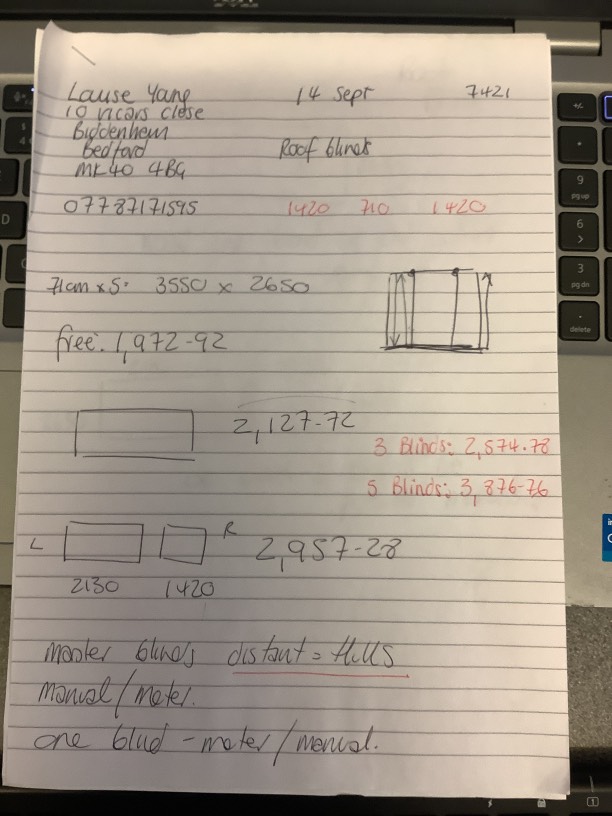 Lause Yang 14 Sept 7421
10 vicars close
Biddenhem
Bedford Roof blinds
MK40 4BG
07787171595 1420 710 1420
71cm x 5: 3550 x 2650
free: 1,972-92
2,127-72
3 Blinds: 2,574.78
5 Blinds: 3,876-76
L R 2,957-28
2130 1420
master blinds distant = Hills
manual/meter.
one blud - meter/manual.
9
pg up
6
3
pg dn
delete
D